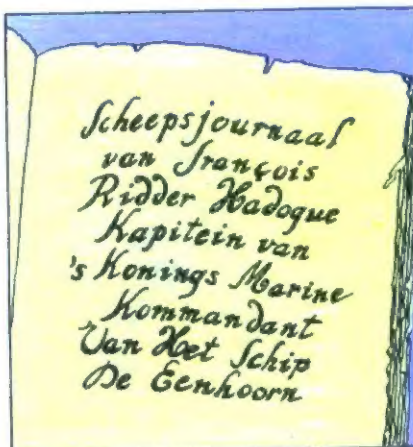 Scheepsjournaal
van François
Ridder Hadoque
Kapitein van
's Konings Marine
Kommandant
Van Het Schip
De Eenhoorn